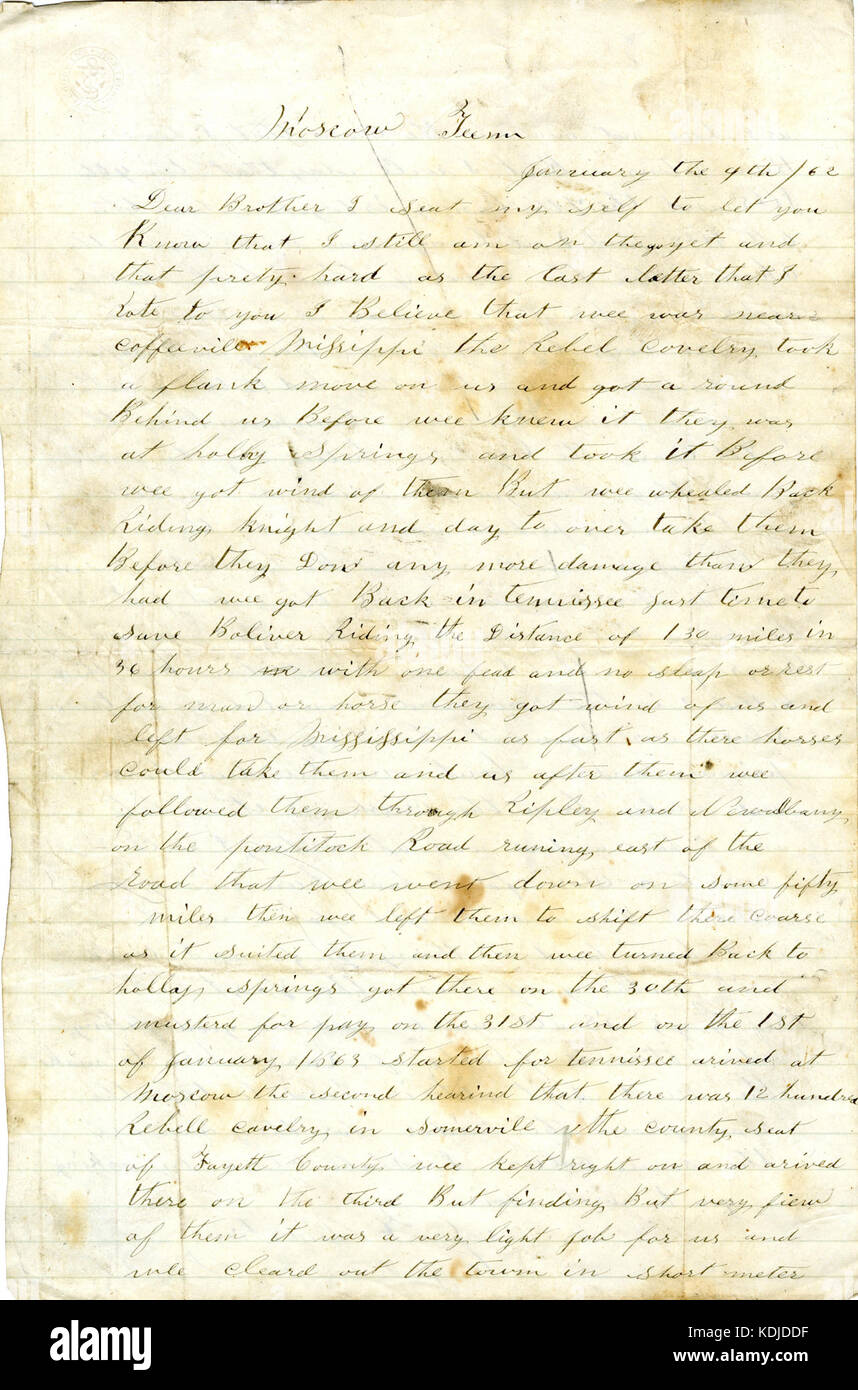 Moscow Tenn
January the 4th /62
Dear Brother I seat my self to let you
Know that I still am on the go yet and
that prety hard as the last letter that I
rote to you I Believe that wee was near
coffeeville Missippi the Rebel Covelry took
a flank move on us and got a round
Behind us Before wee knew it they was
at holly springs and took it Before
wee got wind of them But wee whealed Back
Riding knight and day to over take them
Before they Don any more damage than they
had wee got Back in tennissee just time to
save Boliver Riding the Distance of 130 miles in
36 hours with one fead and no sleap or rest
for man or horse they got wind of us and
left for Mississippi as fast as there horses
could take them and us after them wee
followed them through Ripley and Newalbany
on the pontitock Road runing east of the
Road that wee went down on some fifty
miles then wee left them to shift there coarse
as it suited them and then wee turned Back to
holley springs got there on the 30th and
musterd for pay on the 31st and on the 1st
of January 1863 started for tennissee arived at
Moscow the second hearind that there was 12 hundred
Rebell cavelry in Somervill the county seat
of Fayett County wee kept right on and arived
there on the third But finding But very fiew
of them it was a very light job for us and
wee cleard out the town in short meter
alamy
Image ID: KDJDDF
www.alamy.com